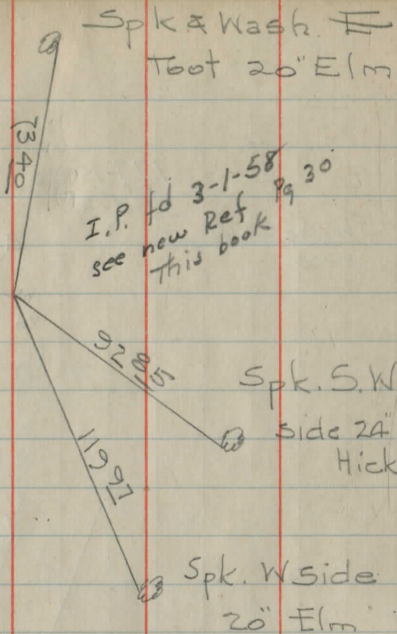 Spk & Wash. E
Toot 20" Elm
7340
I.P. fd 3-1-58
see new Ref Pg 30
This book
9285
Spk. S.W
side 24"
Hick
11997
Spk. W side
20" Elm